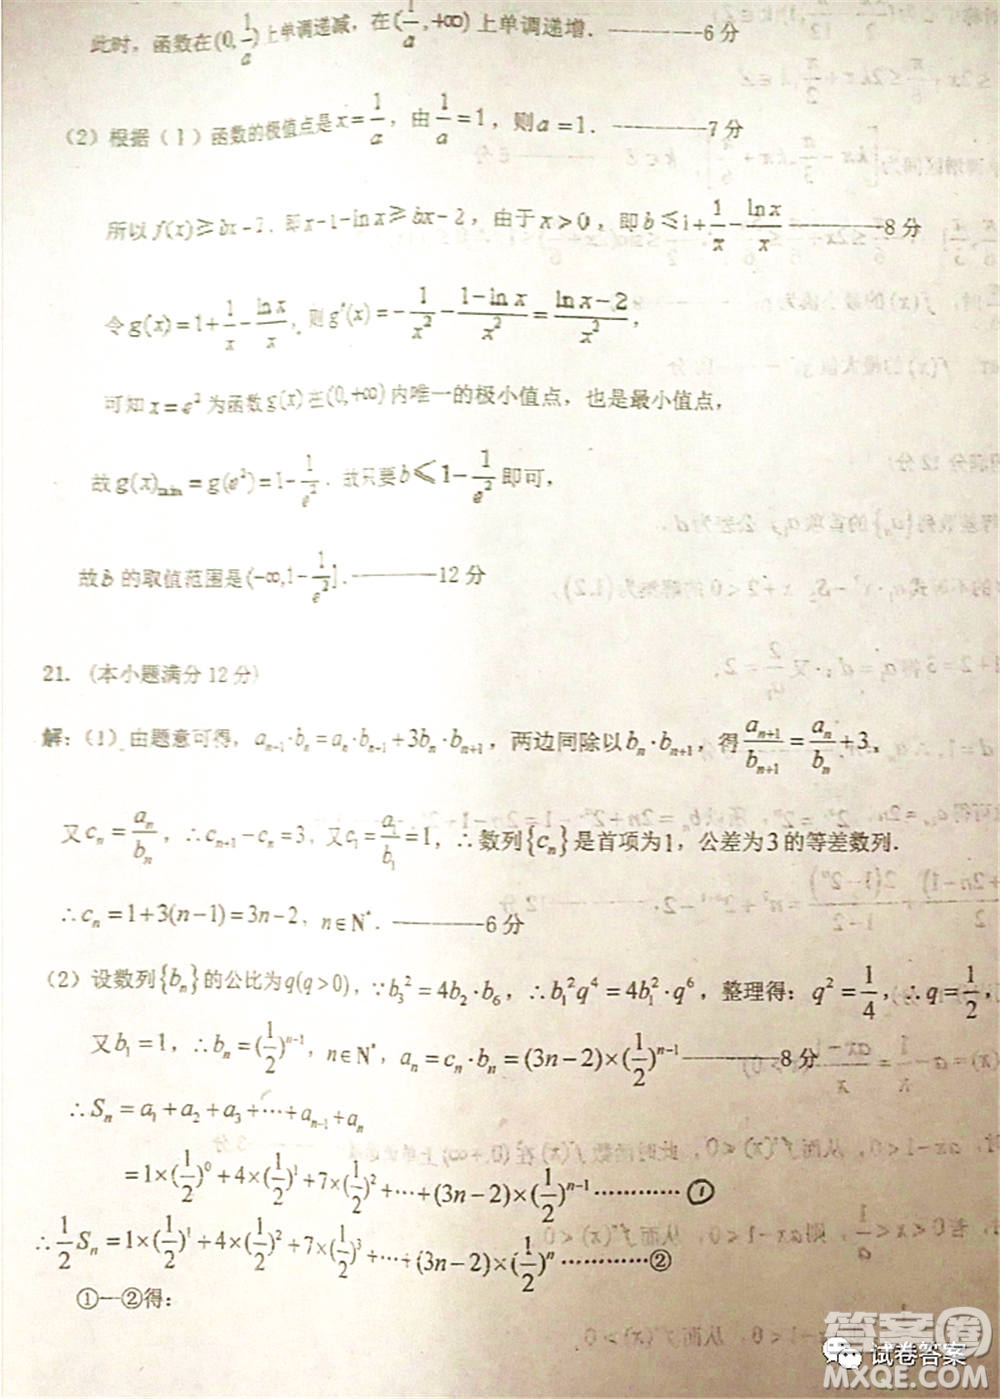 此时，函数在(0,1/a)上单调递减，在(1/a,+∞)上单调递增．————6分
（2）根据（1）函数的极值点是x=1/a，由1/a=1，则a=1．————7分
所以f(x)≥bx-2，即x-1-lnx≥bx-2，由于x>0，即b≤1+1/x-lnx/x————8分
令g(x)=1+1/x-lnx/x，则g'(x)=-1/x²-(1-lnx)/x²=(lnx-2)/x²，
可知x=e²为函数g(x)在(0,+∞)内唯一的极小值点，也是最小值点，
故g(x)min=g(e²)=1-1/e²．故只要b≤1-1/e²即可，
故b的取值范围是(-∞,1-1/e²]．————12分
21．（本小题满分12分）
解：（1）由题意可得，aₙ₊₁·bₙ=aₙ·bₙ₊₁+3bₙ·bₙ₊₁，两边同除以bₙ·bₙ₊₁，得aₙ₊₁/bₙ₊₁=aₙ/bₙ+3，
又cₙ=aₙ/bₙ，∴cₙ₊₁-cₙ=3，又c₁=a₁/b₁=1，∴数列{cₙ}是首项为1，公差为3的等差数列．
∴cₙ=1+3(n-1)=3n-2，n∈N*．————6分
（2）设数列{bₙ}的公比为q(q>0)，∵b₃²=4b₂·b₆，∴b₁²q⁴=4b₁²·q⁶，整理得：q²=1/4，∴q=1/2，
又b₁=1，∴bₙ=(1/2)ⁿ⁻¹，n∈N*，aₙ=cₙ·bₙ=(3n-2)×(1/2)ⁿ⁻¹————8分
∴Sₙ=a₁+a₂+a₃+···+aₙ₋₁+aₙ
=1×(1/2)⁰+4×(1/2)¹+7×(1/2)²+···+(3n-2)×(1/2)ⁿ⁻¹…………①
∴1/2Sₙ=1×(1/2)¹+4×(1/2)²+7×(1/2)³+···+(3n-2)×(1/2)ⁿ…………②
①—②得：
答案圈
试卷答案